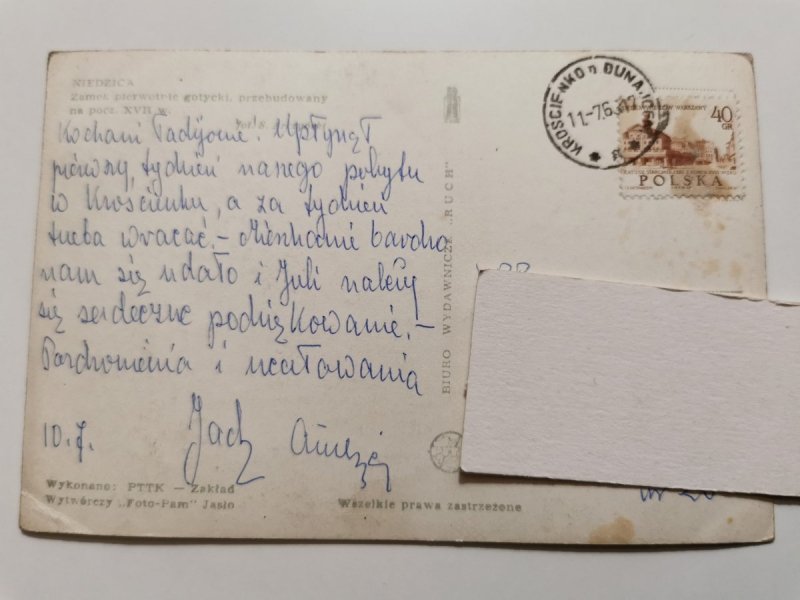 NIEDZICA
Zamek pierwotnie gotycki, przebudowany
na pocz. XVII w.
fot. S.
Kochani Upłynął
pierwszy tydzień naszego pobytu
w Krościenku, a za tydzień
trzeba wracać. - Mieszkanie bardzo
nam się udało i Juli należy
się serdeczne podziękowanie. -
Pozdrowienia i ucałowania
10.7.
Jacy Andrzej
Wykonano: PTTK — Zakład
Wytwórczy „Foto-Pam" Jasło
Wszelkie prawa zastrzeżone
BIURO WYDAWNICZE „RUCH"
KROŚCIENKO n DUNAJCEM
11.-7.6
WARSZAWY
40
GR
POLSKA